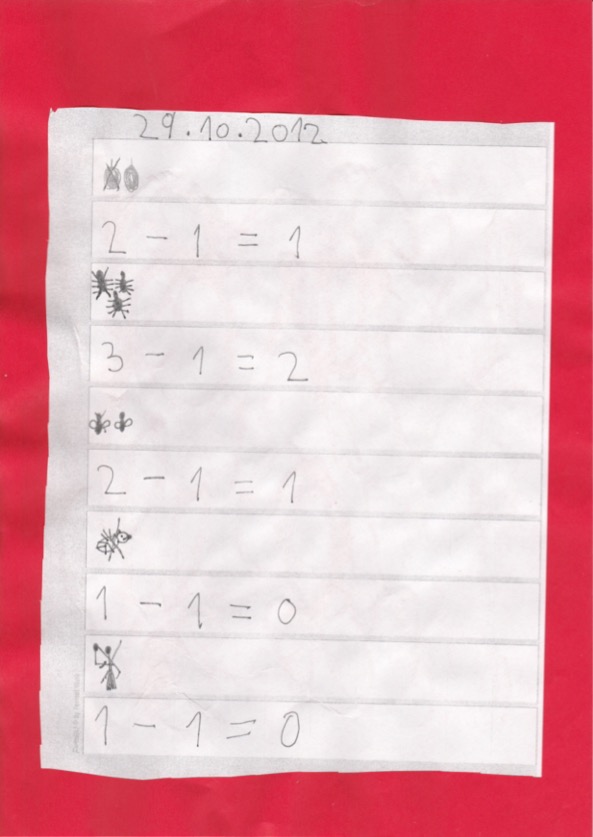 29.10.2012
2 - 1 = 1
3 - 1 = 2
2 - 1 = 1
1 - 1 = 0
1 - 1 = 0